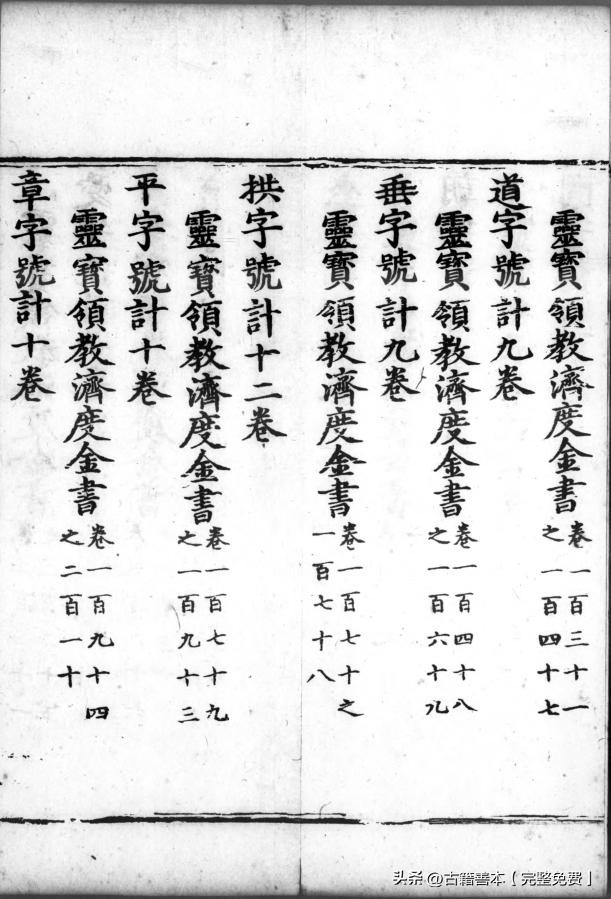 靈寶領教濟度金書 卷一百三十一之一百四十七
道字號計九卷
靈寶領教濟度金書 卷一百四十八之一百六十九
垂字號計九卷
靈寶領教濟度金書 卷一百七十之一百七十八
拱字號計十二卷
靈寶領教濟度金書 卷一百七十九之一百九十三
平字號計十卷
靈寶領教濟度金書 卷一百九十四之二百一十
章字號計十卷
头条 @古籍善本【完整免费】